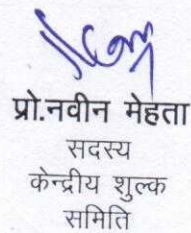 प्रो.नवीन मेहता
सदस्य
केन्द्रीय शुल्क
समिति